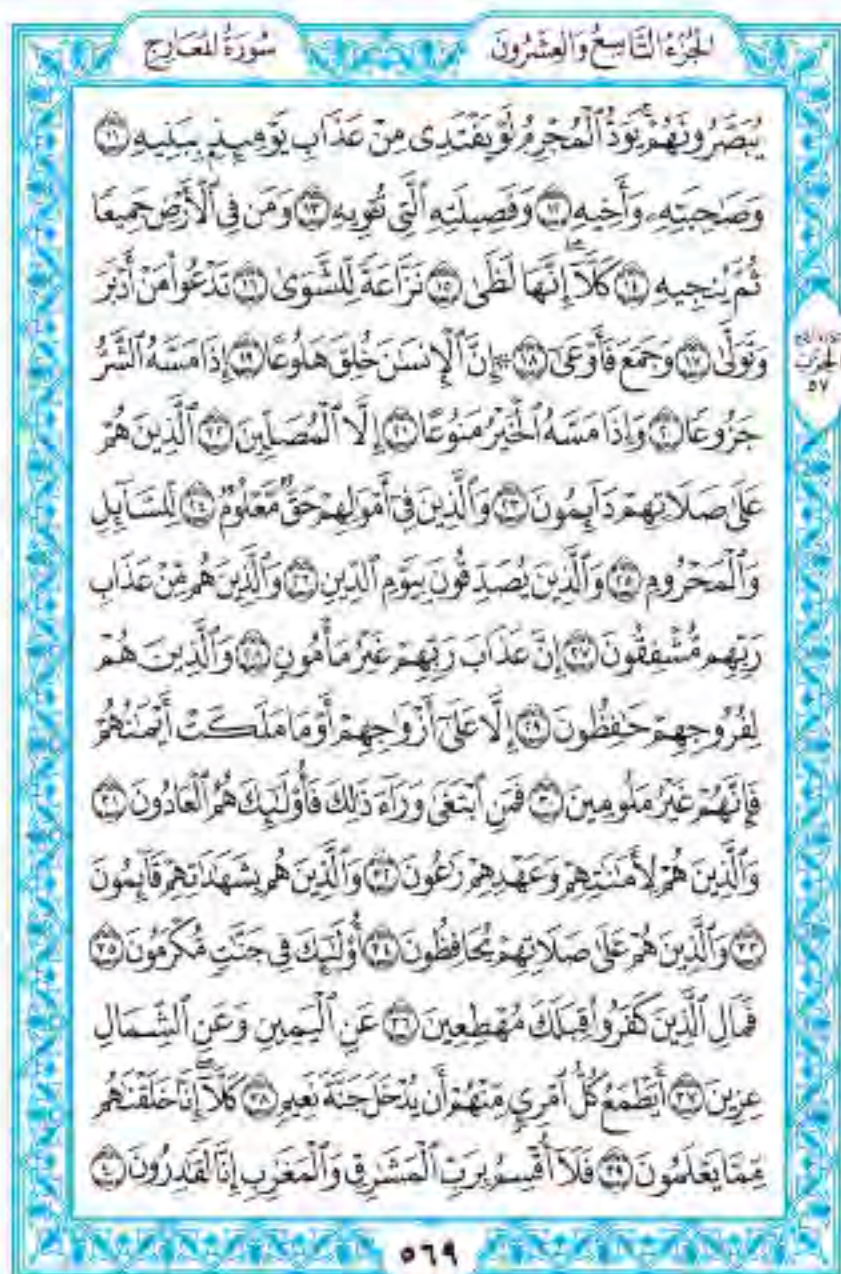 الجُزْءُ التَّاسِعُ وَالعِشْرُونَ
سُورَةُ المَعَارِجِ
يُبَصَّرُونَهُمْ ۚ يَوَدُّ ٱلْمُجْرِمُ لَوْ يَفْتَدِى مِنْ عَذَابِ يَوْمِئِذٍۭ بِبَنِيهِ ١١
وَصَٰحِبَتِهِۦ وَأَخِيهِ ١٢ وَفَصِيلَتِهِ ٱلَّتِى تُـْٔوِيهِ ١٣ وَمَن فِى ٱلْأَرْضِ جَمِيعًا
ثُمَّ يُنجِيهِ ١٤ كَلَّآ ۖ إِنَّهَا لَظَىٰ ١٥ نَزَّاعَةً لِّلشَّوَىٰ ١٦ تَدْعُوا۟ مَنْ أَدْبَرَ
وَتَوَلَّىٰ ١٧ وَجَمَعَ فَأَوْعَىٰٓ ١٨ ۞ إِنَّ ٱلْإِنسَٰنَ خُلِقَ هَلُوعًا ١٩ إِذَا مَسَّهُ ٱلشَّرُّ
جَزُوعًا ٢٠ وَإِذَا مَسَّهُ ٱلْخَيْرُ مَنُوعًا ٢١ إِلَّا ٱلْمُصَلِّينَ ٢٢ ٱلَّذِينَ هُمْ
عَلَىٰ صَلَاتِهِمْ دَآئِمُونَ ٢٣ وَٱلَّذِينَ فِىٓ أَمْوَٰلِهِمْ حَقٌّ مَّعْلُومٌ ٢٤ لِّلسَّآئِلِ
وَٱلْمَحْرُومِ ٢٥ وَٱلَّذِينَ يُصَدِّقُونَ بِيَوْمِ ٱلدِّينِ ٢٦ وَٱلَّذِينَ هُم مِّنْ عَذَابِ
رَبِّهِم مُّشْفِقُونَ ٢٧ إِنَّ عَذَابَ رَبِّهِمْ غَيْرُ مَأْمُونٍ ٢٨ وَٱلَّذِينَ هُمْ
لِفُرُوجِهِمْ حَٰفِظُونَ ٢٩ إِلَّا عَلَىٰٓ أَزْوَٰجِهِمْ أَوْ مَا مَلَكَتْ أَيْمَٰنُهُمْ
فَإِنَّهُمْ غَيْرُ مَلُومِينَ ٣٠ فَمَنِ ٱبْتَغَىٰ وَرَآءَ ذَٰلِكَ فَأُو۟لَٰٓئِكَ هُمُ ٱلْعَادُونَ ٣١
وَٱلَّذِينَ هُمْ لِأَمَٰنَٰتِهِمْ وَعَهْدِهِمْ رَٰعُونَ ٣٢ وَٱلَّذِينَ هُم بِشَهَٰدَٰتِهِمْ قَآئِمُونَ
٣٣ وَٱلَّذِينَ هُمْ عَلَىٰ صَلَاتِهِمْ يُحَافِظُونَ ٣٤ أُو۟لَٰٓئِكَ فِى جَنَّٰتٍ مُّكْرَمُونَ ٣٥
فَمَالِ ٱلَّذِينَ كَفَرُوا۟ قِبَلَكَ مُهْطِعِينَ ٣٦ عَنِ ٱلْيَمِينِ وَعَنِ ٱلشِّمَالِ
عِزِينَ ٣٧ أَيَطْمَعُ كُلُّ ٱمْرِئٍ مِّنْهُمْ أَن يُدْخَلَ جَنَّةَ نَعِيمٍ ٣٨ كَلَّآ ۖ إِنَّا خَلَقْنَٰهُم
مِّمَّا يَعْلَمُونَ ٣٩ فَلَآ أُقْسِمُ بِرَبِّ ٱلْمَشَٰرِقِ وَٱلْمَغَٰرِبِ إِنَّا لَقَٰدِرُونَ ٤٠
الحِزْب
٥٧
٥٦٩